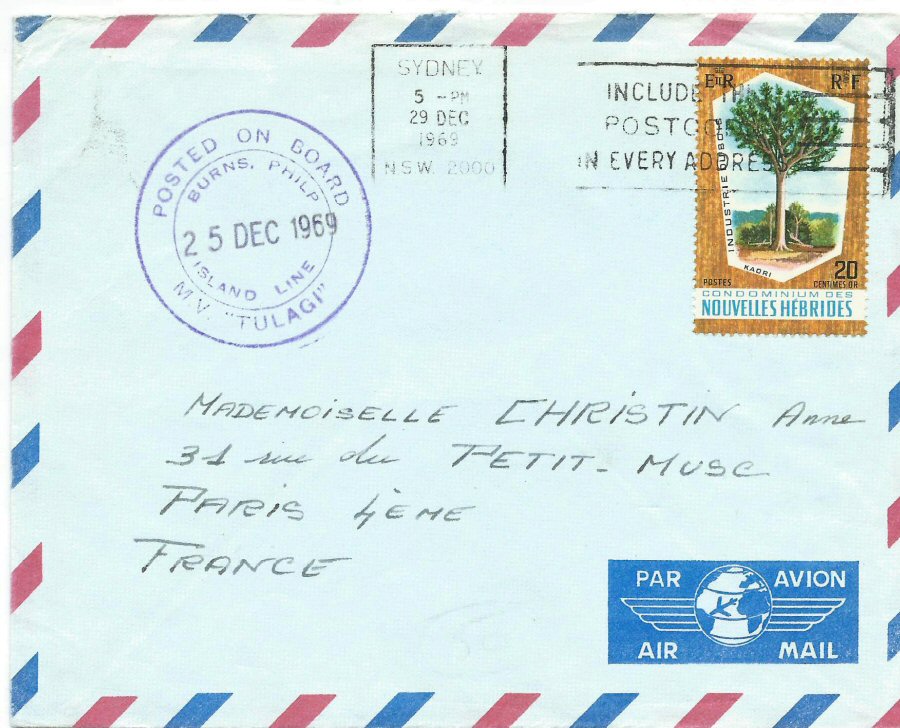 SYDNEY
5 - PM
29 DEC
1969
N.S.W. 2000
INCLUDE TH
POSTCO
IN EVERY ADDRESS
POSTED ON BOARD
BURNS, PHILP
25 DEC 1969
ISLAND LINE
M.V. "TULAGI"
EIIR RF
INDUSTRIE DU BOIS
KAORI
POSTES
20
CENTIMES OR
CONDOMINIUM DES
NOUVELLES HÉBRIDES
MADEMOISELLE CHRISTIN Anne
31 rue du PETIT-MUSC
PARIS 4ÈME
FRANCE
PAR AVION
AIR MAIL